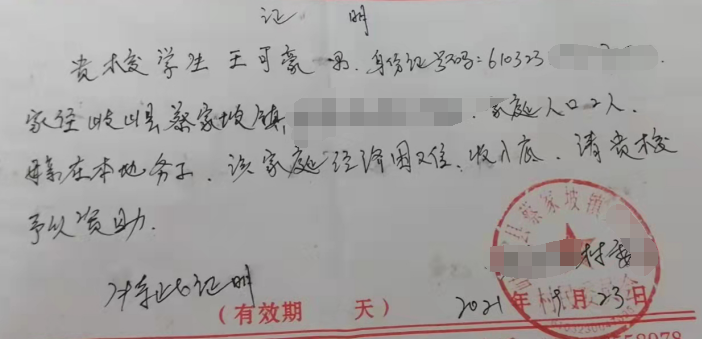 证 明
贵校学生王可豪 男.身份证号码:610323
家住岐山县蔡家坡镇, .家庭人口2人.
母亲在本地务工.该家庭经济困难,收入底.请贵校
予以资助.
县蔡家坡镇
村委
特此证明
(有效期 天) 2021年9月23日